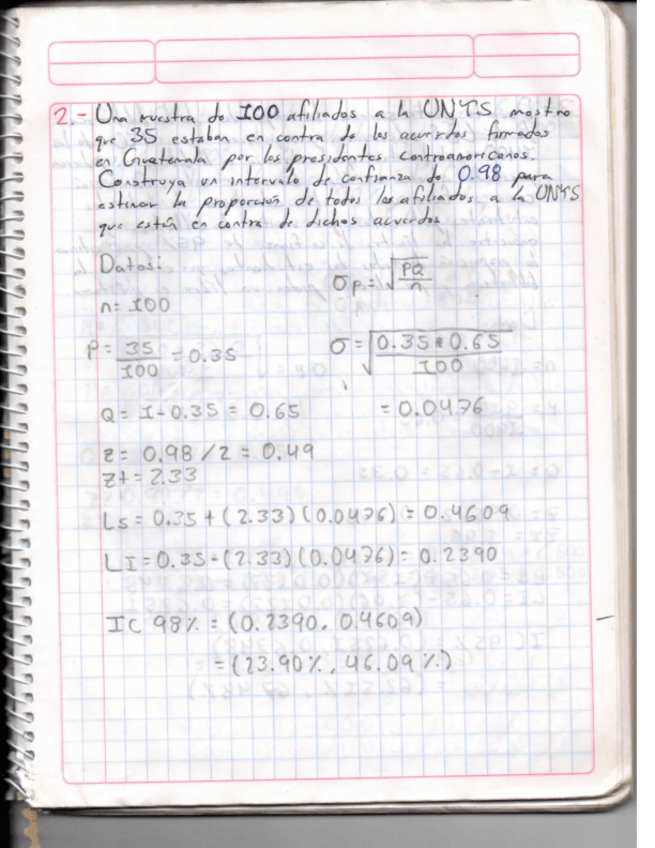 2.- Una muestra de 100 afiliados a la UNTS mostro
que 35 estaban en contra de los acuerdos firmados
en Guatemala por los presidentes centroamericanos.
Construya un intervalo de confianza de 0.98 para
estimar la proporción de todos los afiliados a la UNTS
que están en contra de dichos acuerdos
Datos:
n= 100
σp=√PQ/n
P= 35/100 = 0.35
σ=√0.35*0.65/100
Q= 1-0.35 = 0.65
= 0.0476
z= 0.98/2 = 0.49
Zt= 2.33
Ls= 0.35+(2.33)(0.0476)= 0.4609
LI=0.35-(2.33)(0.0476)= 0.2390
IC 98%=(0.2390, 0.4609)
=(23.90%, 46.09%)